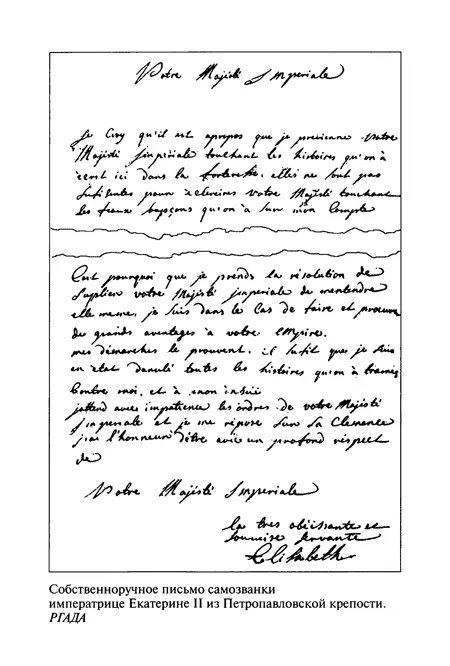 Votre Majesté Imperiale
Je Croy qu'il est apropos que je previenne Votre
Majesté jmperiale touchant les histoires qu'on à
ecrit ici dans la forteresse, elles ne sont pas
Sufisentes pour eclercires Votre Majesté touchant
les faux supçons qu'on à sur mon Compte
C'est pourquoi que je prends la résolution de
Suplier votre Majesté jmperiale de m'entendre
elle meme, je suis dans le Cas de faire et procurer
de grands aventages à votre Empire.
mes démarches le prouvent. il sufit que je suis
en état danulé toutes les histoires qu'on à tramés
Contre moi, et à mon insue
jattend avec impatience les ordres de votre Majesté
jmperiale et je me repose sur sa Clemence
j'ai l'honneur d'être avec un profond réspect
de
Votre Majesté Imperiale
la tres obéissante et
soumise servante
Elisabeth
Собственноручное письмо самозванки
императрице Екатерине II из Петропавловской крепости.
РГАДА